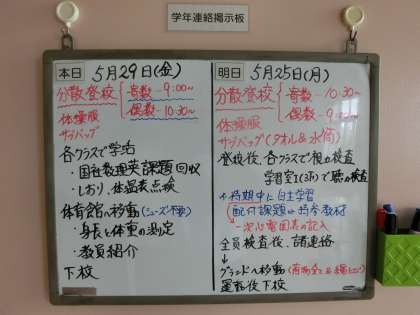 学年連絡掲示板
本日 5月29日(金)
分散登校 奇数-9:00~
偶数-10:30~
体操服
サブバッグ
各クラスで学活
・国社数理英課題回収
・しおり、体温表点検
体育館へ移動(シューズ不要)
・身長と体重の測定
・教員紹介
下校
明日 5月25日(月)
分散登校 奇数-10:30~
偶数-9:
体操服
サブバッグ(タオル&水筒)
登校後、各クラスで視力検査
学習室で聴力検査
待期中に自主学習
配付課題or持参教材
心電図表の記入
全員検査後、諸連絡
グランドへ移動
運動後下校